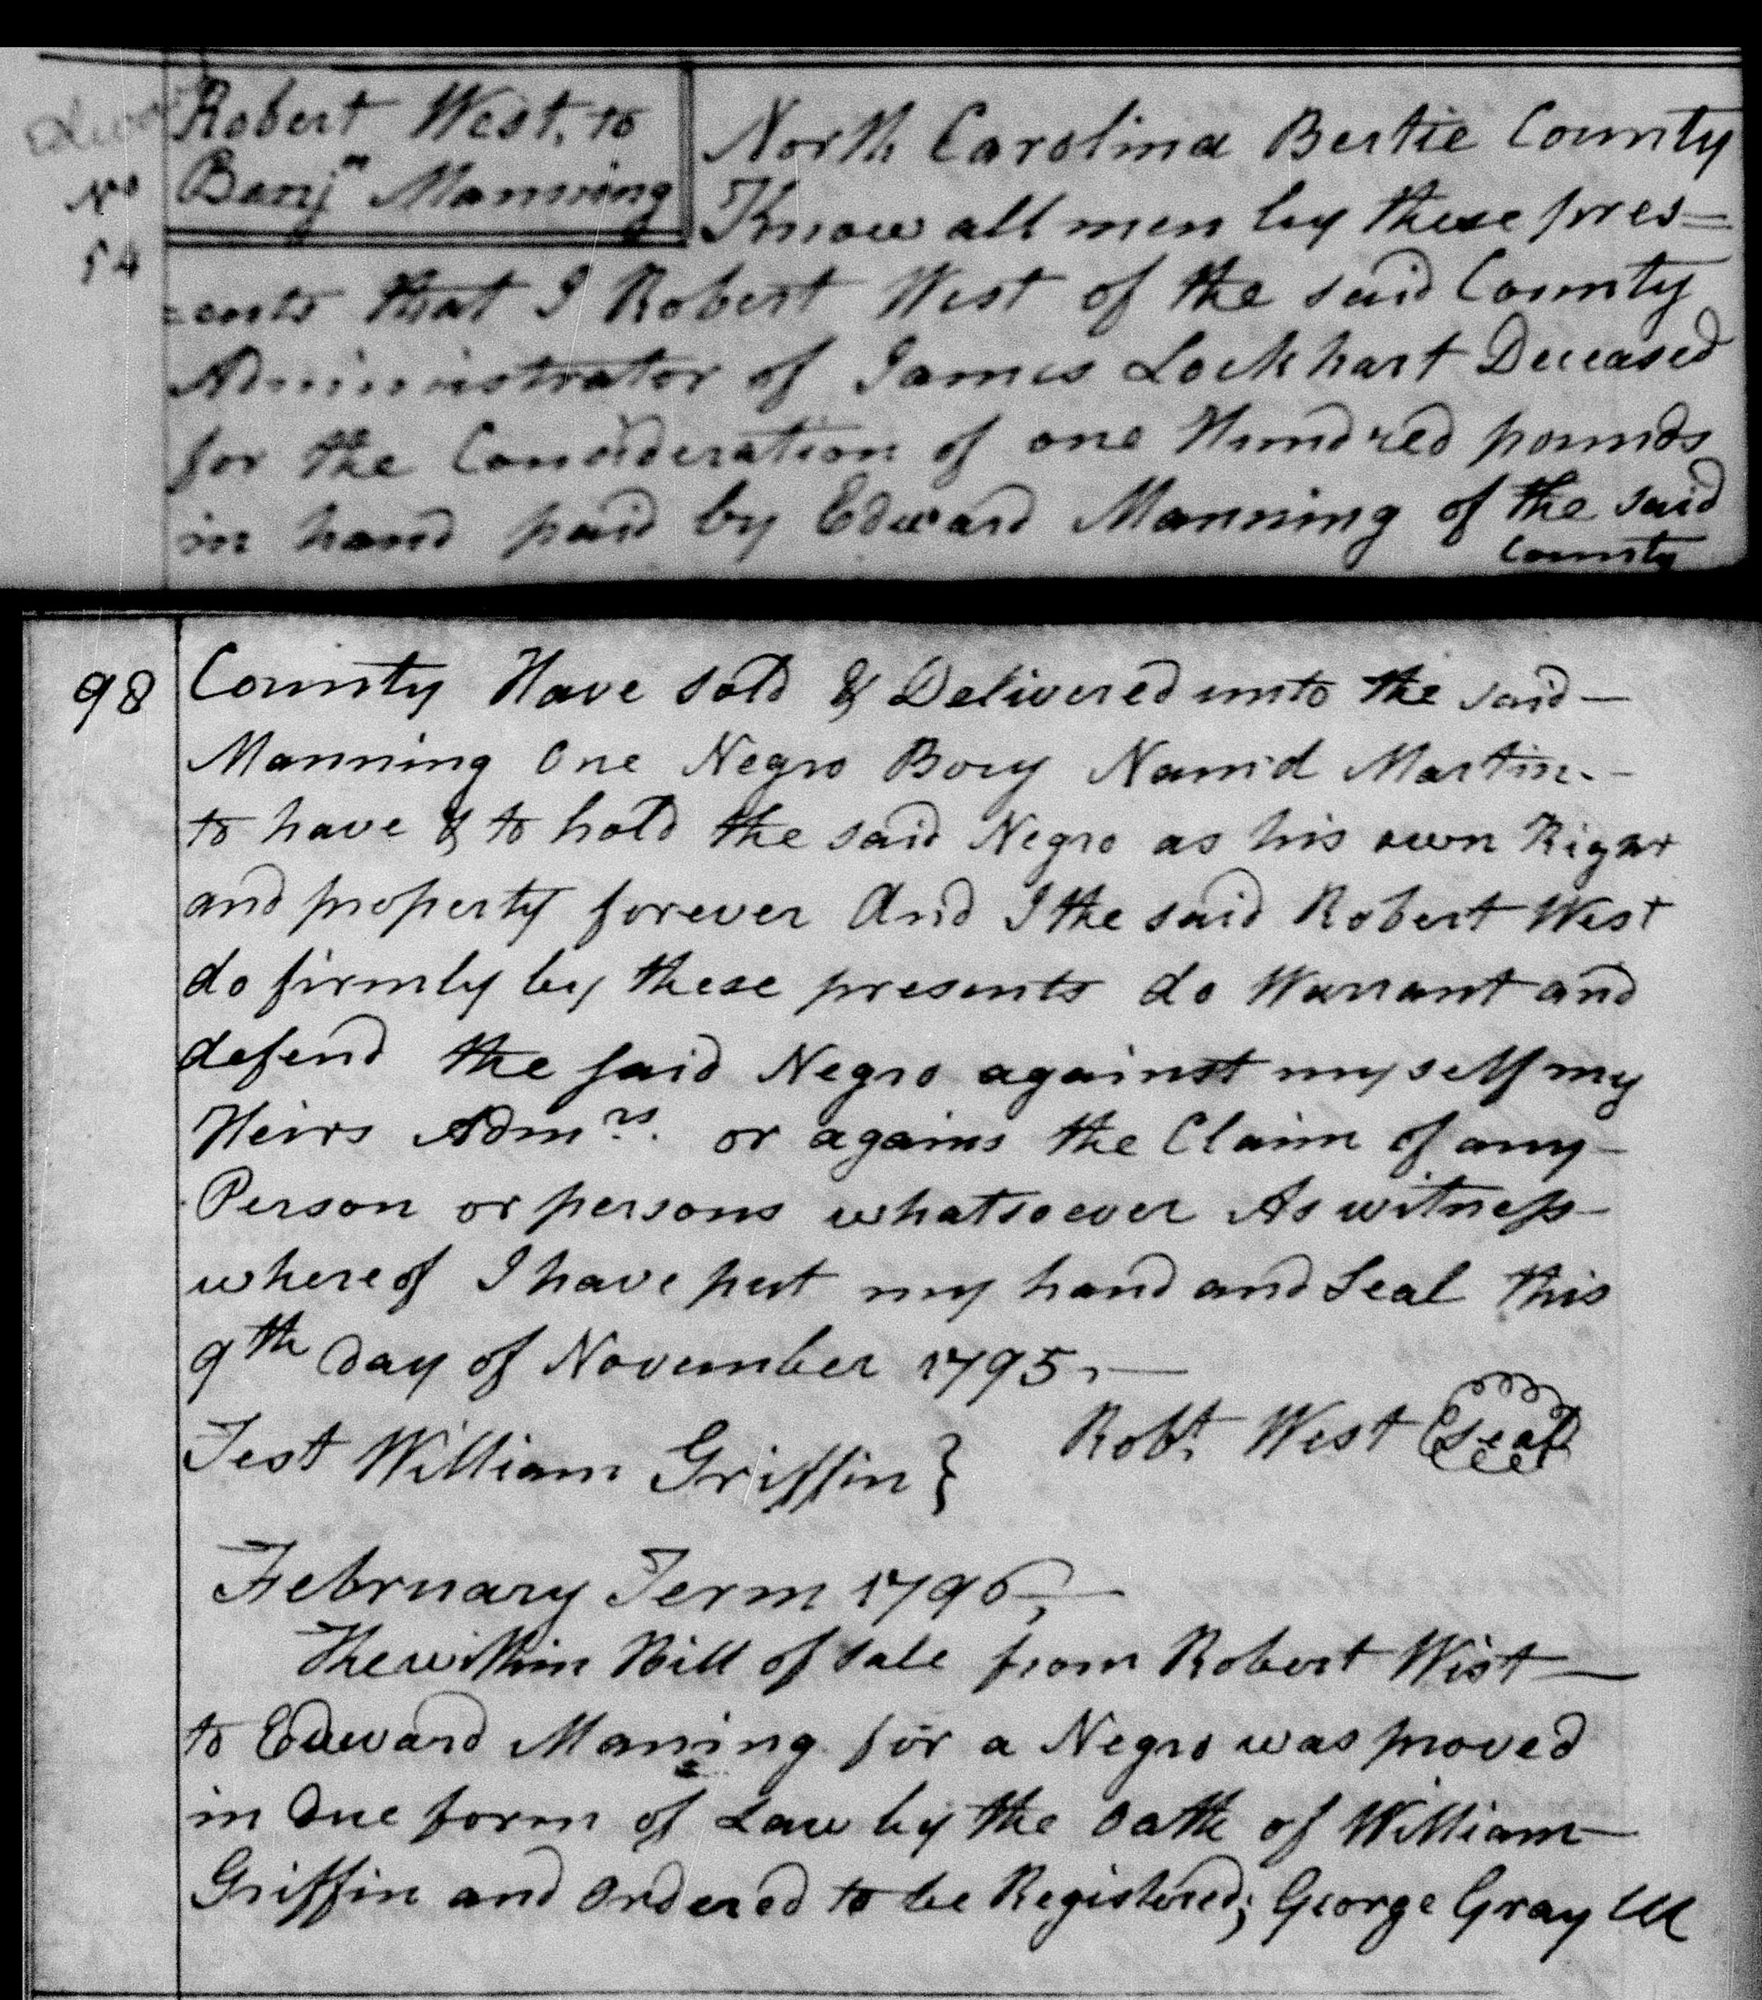 Robert West, to
Benjn Manning
No
54
North Carolina Bertie County
Know all men by these pres=
=ents that I Robert West of the said County
Administrator of James Lockhart Deceased
for the Consideration of one Hundred pounds
in hand paid by Edward Manning of the said
County
98
County Have sold & Delivered unto the said —
Manning One Negro Boey Namid Martin. -
to have & to hold the said Negro as his own Right
and property forever And I the said Robert West
do firmly by these presents do Warrant and
defend the said Negro against myself my
Heirs Admrs. or agains the Claim of any —
Person or persons whatsoever As witness —
whereof I have put my hand and Seal this
9th day of November 1795, —
Robt. West Seal
Test William Griffin }
February Term 1796, —
The within Bill of Sale from Robert West —
to Edward Maning for a Negro was proved
in due form of Law by the oath of William —
Griffin and ordered to be Registered; George Gray CCC